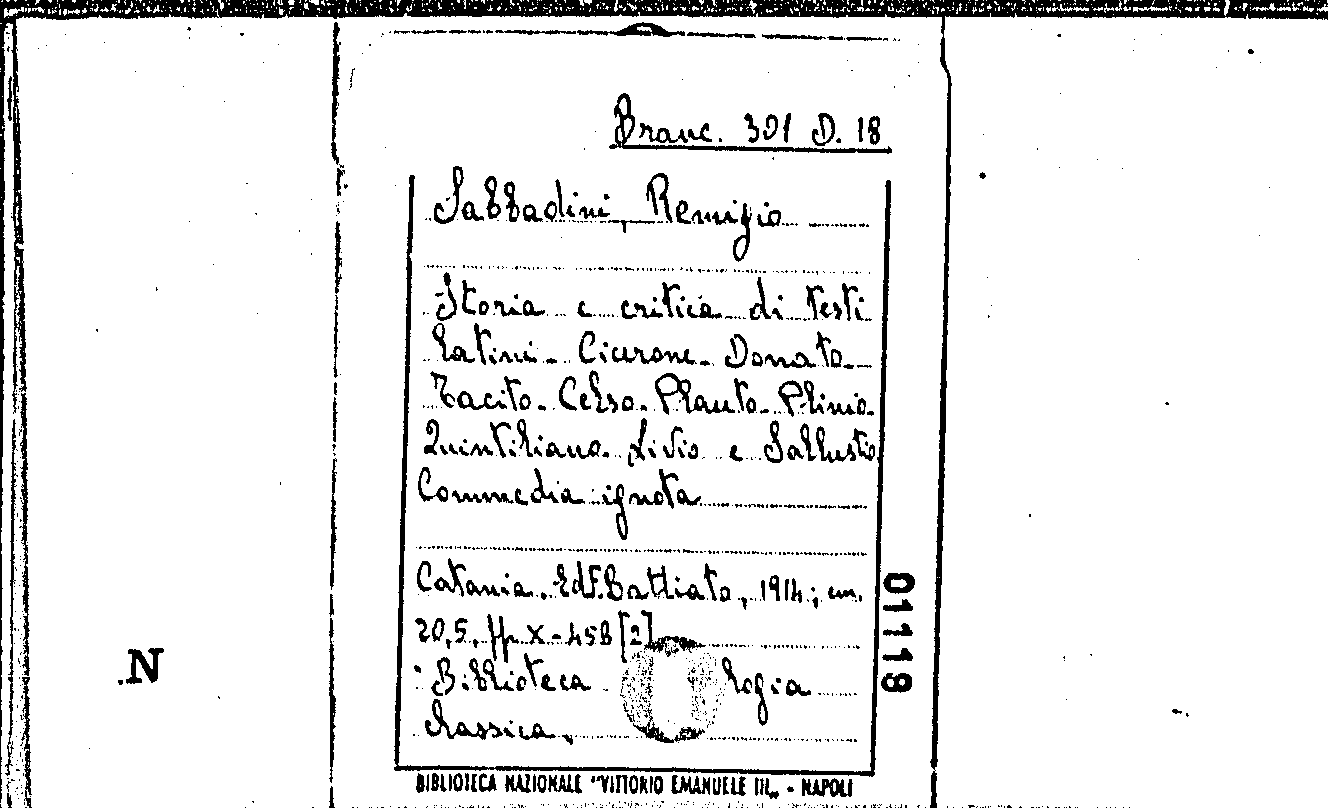 Branc. 301 D. 18
Sabbadini, Remigio
Storia e critica di testi
latini - Cicerone - Donato -
Tacito - Celso - Plauto - Plinio -
Quintiliano - Livio e Sallustio
Commedia ignota
Catania, Ed. F. Battiato, 1914; cm.
20,5, pp. X-458 [2]
Biblioteca logia
classica,
BIBLIOTECA NAZIONALE "VITTORIO EMANUELE III„ - NAPOLI
01119
.N